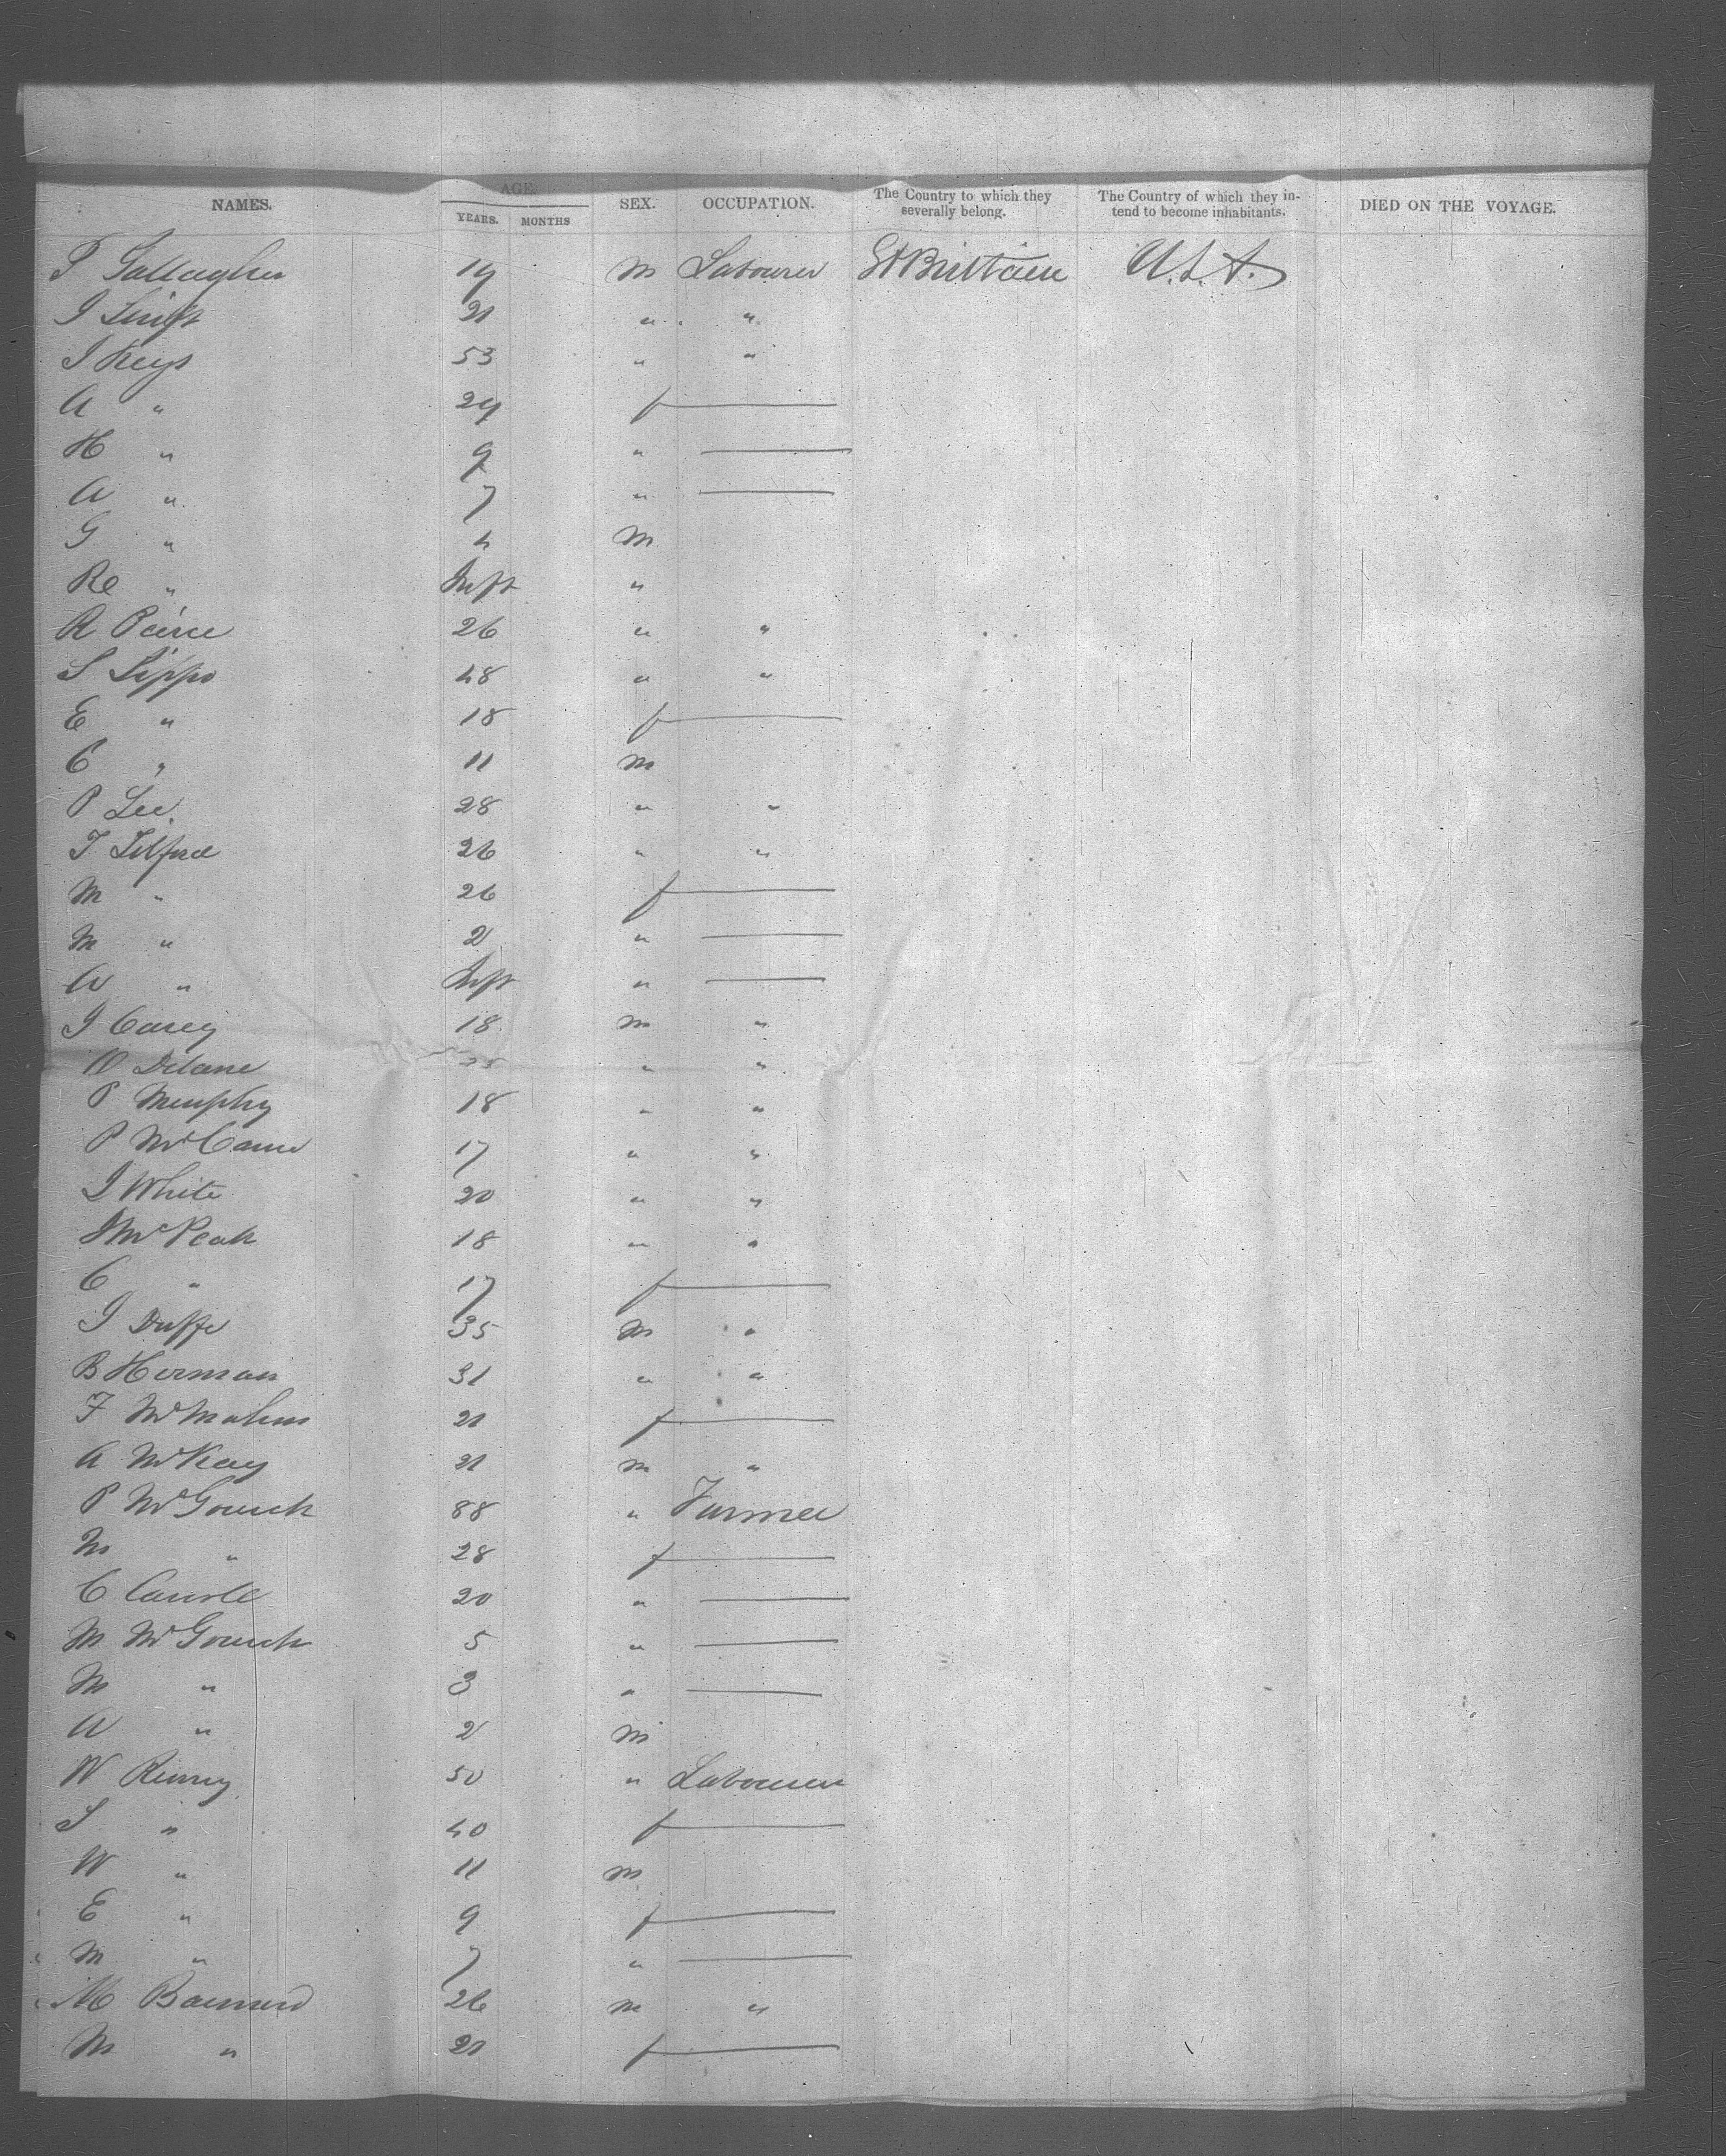 NAMES. AGE. YEARS. MONTHS SEX. OCCUPATION. The Country to which they severally belong. The Country of which they intend to become inhabitants. DIED ON THE VOYAGE.
T Gallagher 19 m Labourer Gt Brittain U.S.A.
J 21 " "
J Keys 53 " "
A " 29 f
H " 9 "
A " 7 "
G " 4 m
Re " Inft "
R Peirce 26 " "
S Sippo 48 " "
E " 18 f
C " 11 m
P Lee. 28 " "
T Tilford 26 " "
M " 26 f
M " 2 "
A " Inft "
J Casey 18 m "
Delane " "
P Murphy 18 " "
P McCann 17 " "
J White 20 " "
J McPeak 18 " "
C " 17 f
J Duffe 35 m "
B Horman 31 " "
F McMahon 21 f
A McKay 21 m "
P 88 " Farmer
M " 28 f
C Carroll 20 "
M 5 "
M " 3 "
A " 2 m
W 50 " Labourer
S " 40 f
W " 11 m
E " 9 f
M " 7 "
M 26 m "
M " 21 f